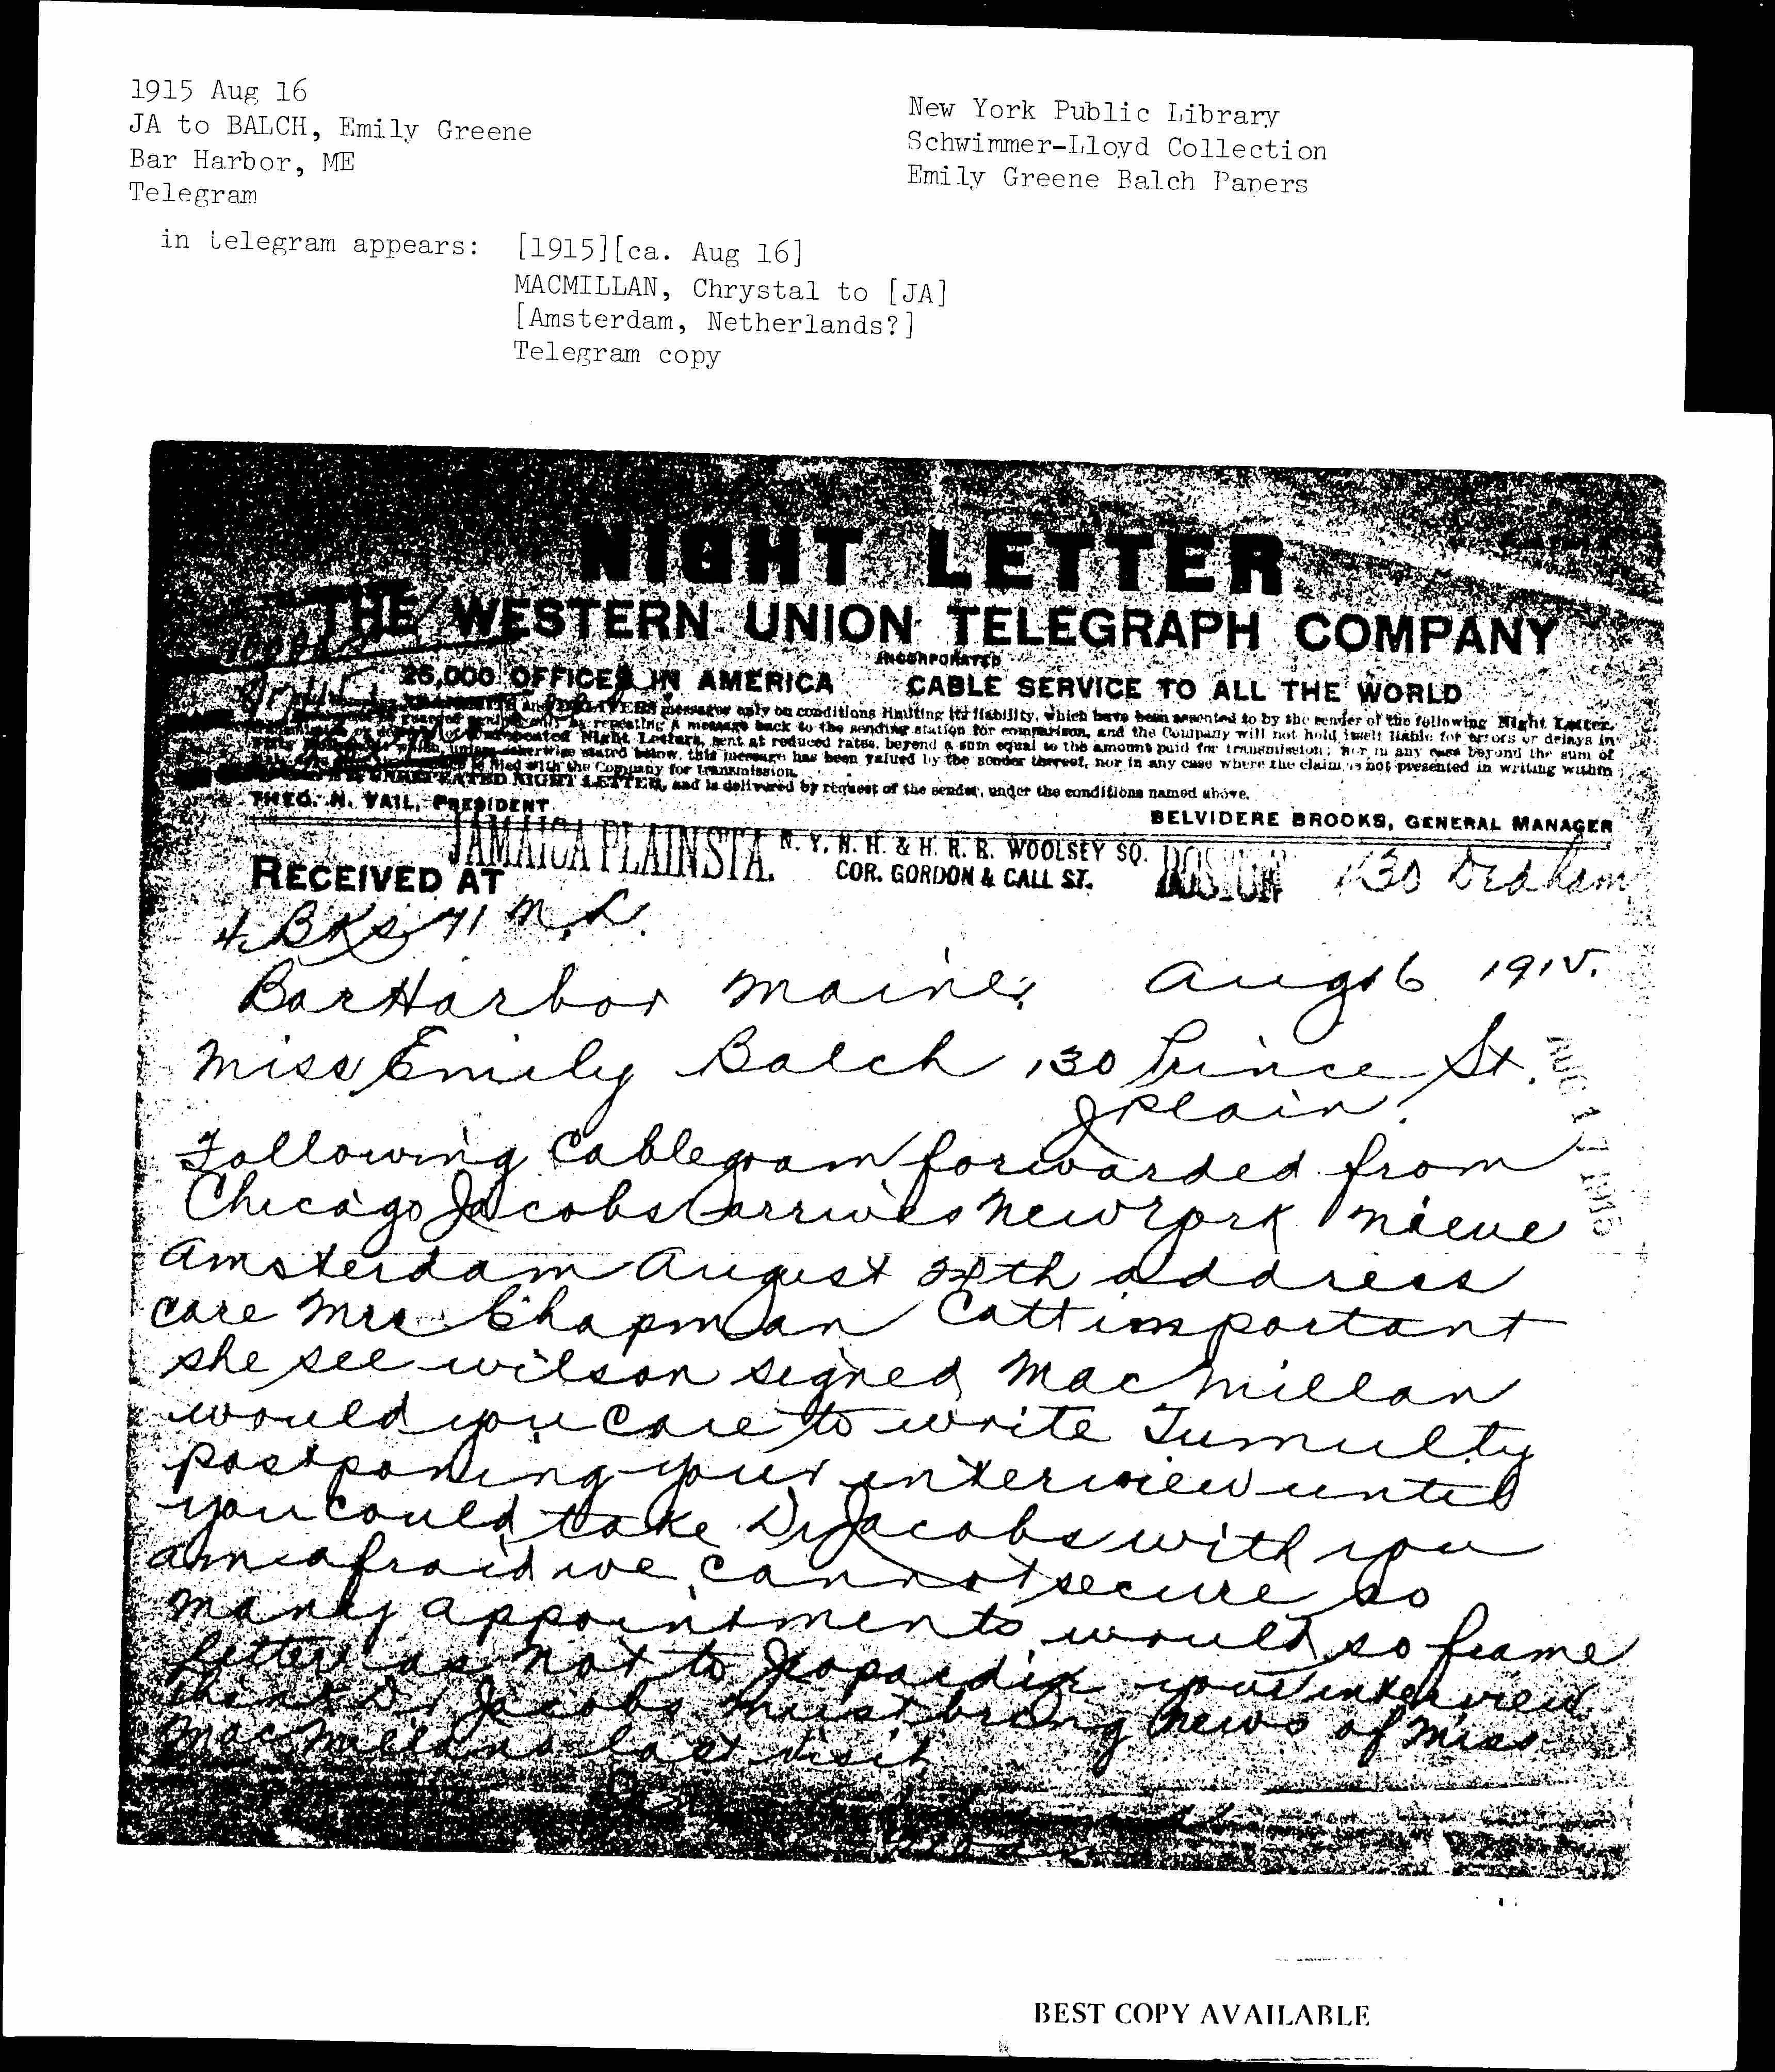 1915 Aug 16
JA to BALCH, Emily Greene
Bar Harbor, ME
Telegram
New York Public Library
Schwimmer-Lloyd Collection
Emily Greene Balch Papers
in telegram appears: [1915][ca. Aug 16]
MACMILLAN, Chrystal to [JA]
[Amsterdam, Netherlands?]
Telegram copy
NIGHT LETTER
THE WESTERN UNION TELEGRAPH COMPANY
INCORPORATED
25,000 OFFICES IN AMERICA CABLE SERVICE TO ALL THE WORLD
messages only on conditions limiting its liability, which have been assented to by the sender of the following Night Letter.
by repeating a message back to the sending station for comparison, and the Company will not hold itself liable for errors or delays in
Night Letters, sent at reduced rates, beyond a sum equal to the amount paid for transmission; nor in any case beyond the sum of
unless otherwise stated below, this message has been valued by the sender thereof, nor in any case where the claim is not presented in writing within
is filed with the Company for transmission.
UNREPEATED NIGHT LETTER, and is delivered by request of the sender, under the conditions named above.
THEO. N. VAIL, PRESIDENT
BELVIDERE BROOKS, GENERAL MANAGER
RECEIVED AT JAMAICA PLAIN STA. N. Y. N. H. & H. R. R. WOOLSEY SQ. BOSTON 130
COR. GORDON & CALL ST.
71 N.L.
Bar Harbor Maine Aug 16 1915.
Miss Emily Balch 130 Prince St.
J Plain.
AUG 17 1915
Following Cablegram forwarded from
Chicago Jacobs arrives New York Nieue
Amsterdam August address
care Mrs Chapman Catt important
she see wilson signed MacMillan
would you care to write Tumulty
postponing your interview until
you could take Dr Jacobs with you
am afraid we cannot secure so
many appointments would so frame
letter as not to jeopardize your interview
think Dr Jacobs must bring news of Miss
MacMillans last visit
BEST COPY AVAILABLE